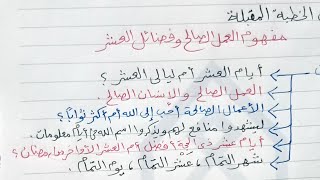 الخطبة المقبلة
مفهوم العمل الصالح وفضائل العشر
أيام العشر أم ليالي العشر ؟
العمل الصالح والإنسان الصالح
الأعمال الصالحة أحب إلى الله أم أكثر ثوابًا ؟
ليشهدوا منافع لهم ويذكروا اسم الله في أيام معلومات .
أيام عشر ذي الحجة أفضل أم العشر الأواخر من رمضان ؟
شهر التمام ، عشر التمام ، يوم التمام .